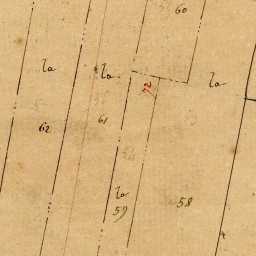 60
la
la
la
72
62
61
la
59
58